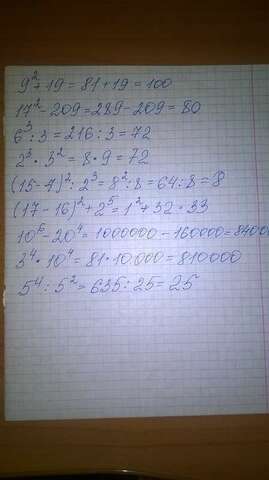 9² + 19 = 81 + 19 = 100
17² - 209 = 289 - 209 = 80
6³ : 3 = 216 : 3 = 72
2³ · 3² = 8 · 9 = 72
(15-7)² : 2³ = 8² : 8 = 64 : 8 = 8
(17 - 16)² + 2⁵ = 1² + 32 = 33
10⁶ - 20⁴ = 1000000 - 160000 = 84000
3⁴ · 10⁴ = 81 · 10.000 = 810000
5⁴ : 5² = 635 : 25 = 25